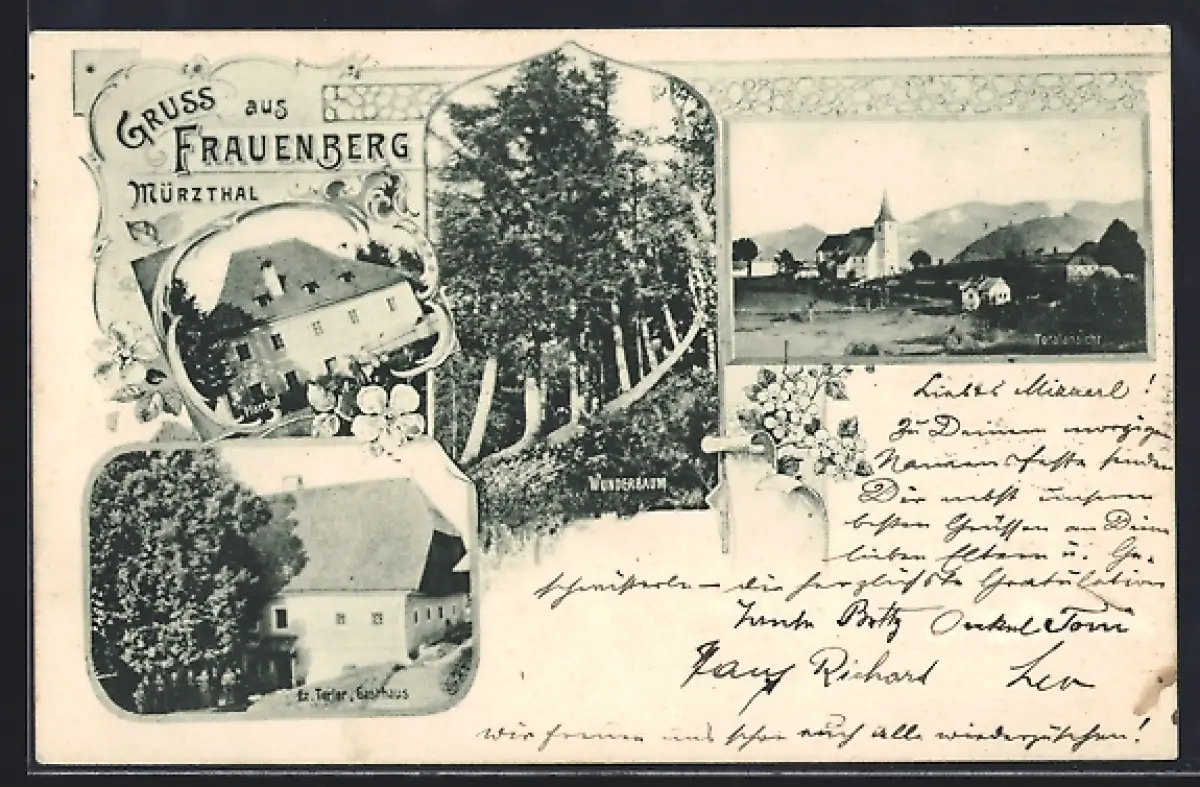 GRUSS aus
FRAUENBERG
MÜRZTHAL
Pfarrhof
WUNDERBAUM
Totalansicht
Ez. Terler, Gasthaus
Liebes Mizzerl!
Zu Deinem morgigen
Namensfeste senden
Dir nebst unseren
besten Grüssen an Deine
lieben Eltern u. Ge-
schwisterln – die herzlichste Gratulation
Tante Betty Onkel Toni
Richard Leo
wir freuen uns schon euch alle wiederzusehen!